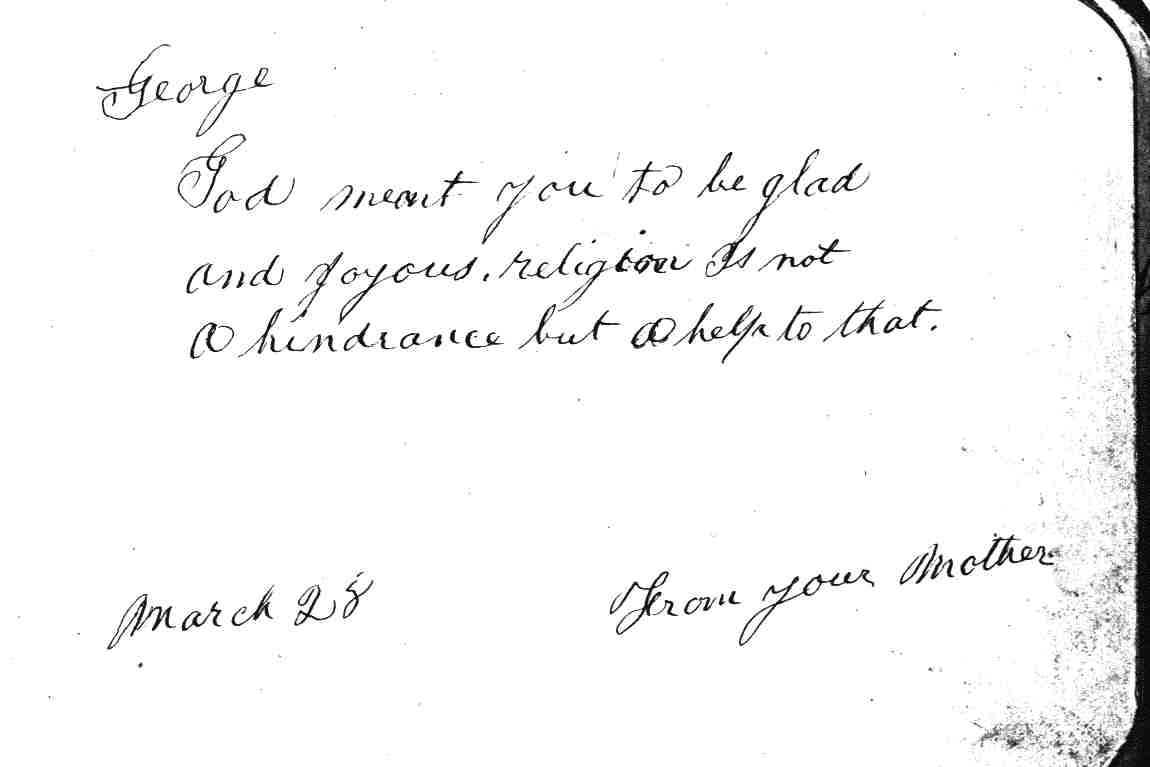 George
God meant you to be glad
and joyous. religion Is not
a hindrance but a help to that.
March 28 From your Mother